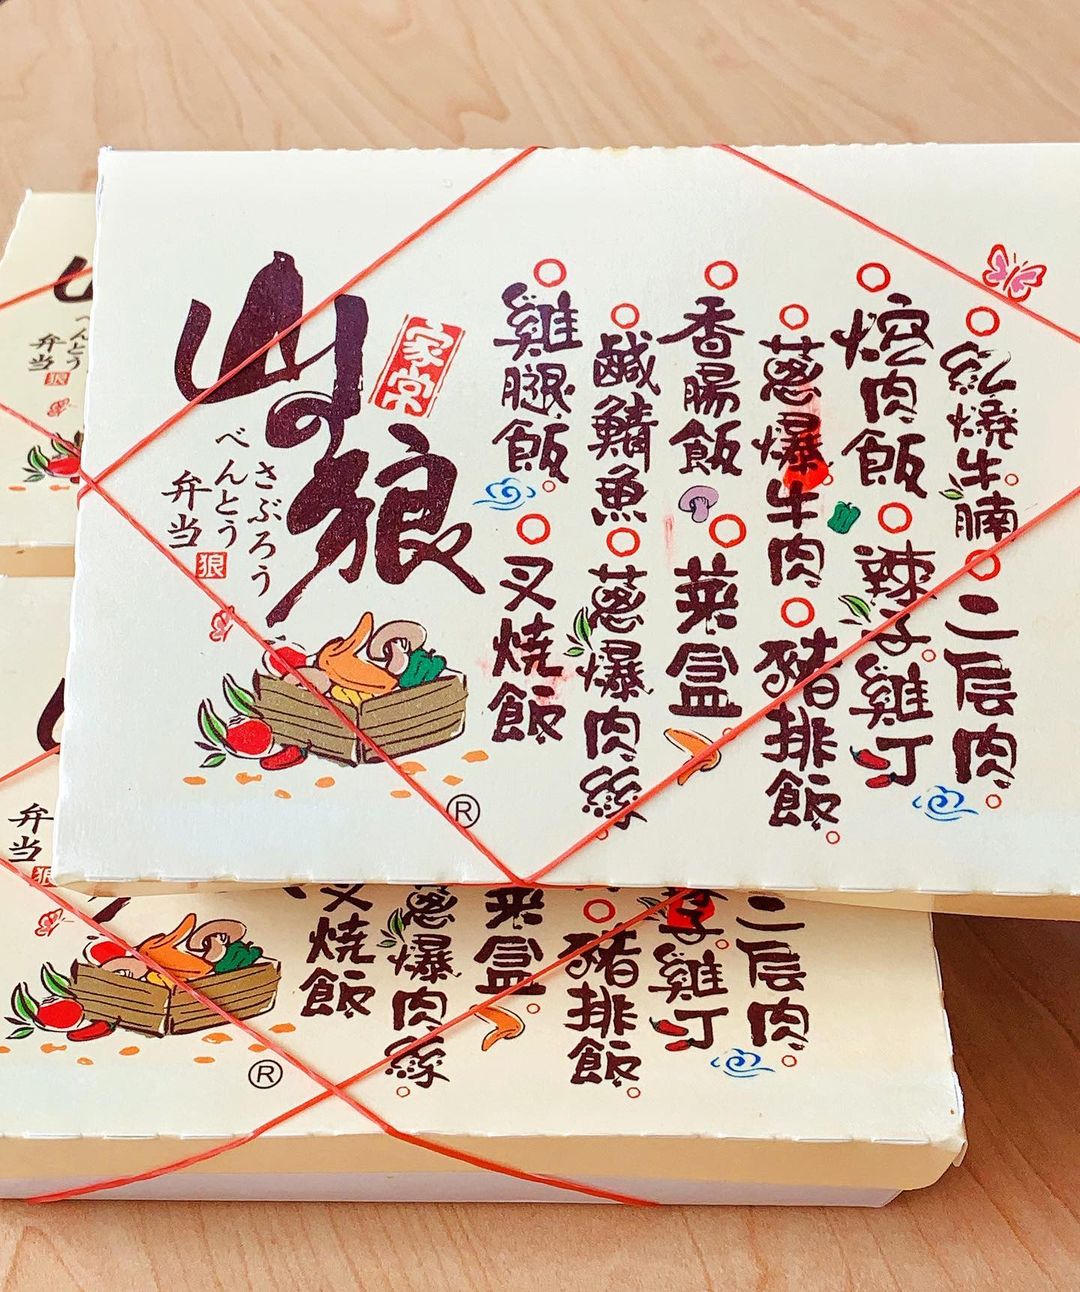 紅燒牛腩
二层肉
焢肉飯
辣子雞丁
蔥爆牛肉
豬排飯
香腸飯
菜盒
鹹鯖魚
蔥爆肉絲
雞腿飯
叉燒飯
家常
山の狼
さぶろう
べんとう
弁当
狼
®
べんとう
弁当
狼
二层肉
子雞丁
豬排飯
菜盒
蔥爆肉絲
叉燒飯
弁当
狼
®